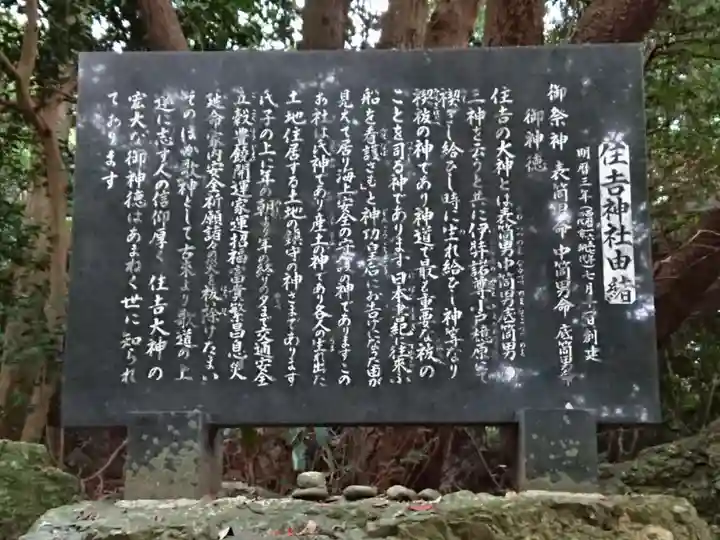 住𠮷神社由緒
明暦三年 七月 日創建
御祭神 表筒男命 中筒男命 底筒男命
御神徳
住吉の大神とは表筒男中筒男底筒男の
三神を云うと共に伊弉諾尊 小戸檍原にて
禊ぎし給ひし時に生れ給ひし神等なり
禊祓の神であり神道で最も重要な祓の
ことを司る神であります 日本書紀に往来ふ
船を看護さむと神功皇后にお告げになった由が
見えて居り海上安全の守護の神でありますこの
お社は氏神であり産土の神であり各人の生れ出た
土地住居する土地の鎮守の神さまであります
氏子の上に年の朝より年の終りの夕まで交通安全
五穀豊饒開運家運招福富貴繁昌息災
延命家内安全祈願諸々の災を祓除けたまい
そのほか歌神として古来より歌道の上
達に志す人の信仰厚く 住吉大神の
宏大な御神徳はあまねく世に知られ
ております